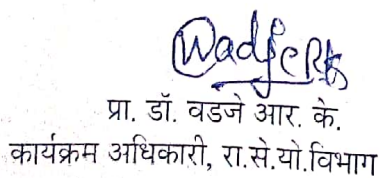 Wadje RK
प्रा. डॉ. वडजे आर. के.
कार्यक्रम अधिकारी, रा.से.यो.विभाग